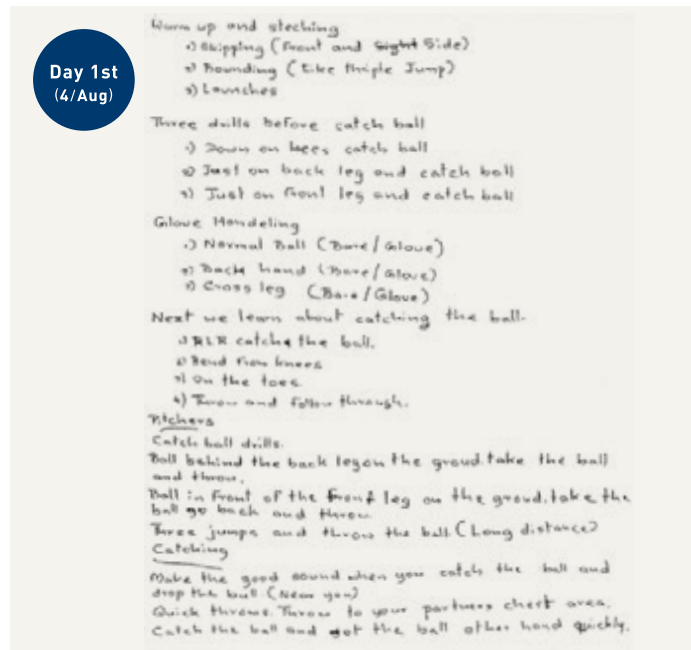 Day 1st
(4/Aug)
Warm up and steching
1) Skipping (Front and Side)
2) Bounding (Like thiple Jump)
3) Launches
Three drills before catch ball
1) Down on kees catch ball
2) Just on back leg and catch ball
3) Just on front leg and catch ball
Glove Handeling
1) Normal Ball (Bare/Glove)
2) Back hand (Bare/Glove)
3) Cross leg (Bare/Glove)
Next we learn about catching the ball.
1) RLR catche the ball.
2) Bend From knees
3) On the toes
4) Throw and follow through.
Pitchers
Catch ball drills.
Ball behind the back leg on the groud. take the ball
and throw.
Ball in Front of the front leg on the groud. take the
ball go back and throw
Three jumps and throw the ball (Long distance)
Catching
Make the good sound when you catch the ball and
drop the ball (Near you)
Quick throws. Throw to your partners chest area.
Catch the ball and got the ball other hand quickly.